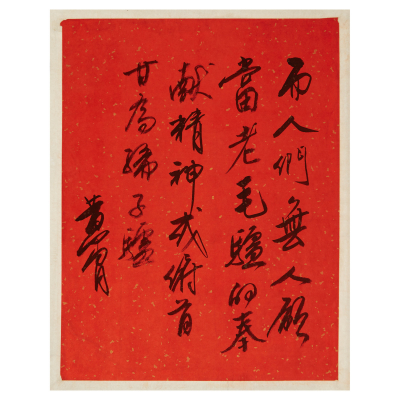 而人們無人願
當老毛驢的奉
獻精神我俯首
甘為孺子驢
黃胄